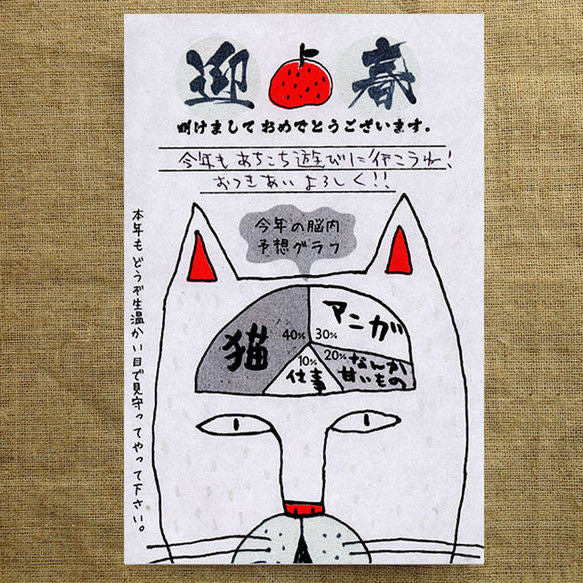 迎春
明けましておめでとうございます。
今年もあちこち遊びに行こうね!
おつきあいよろしく!!
今年の脳内
予想グラフ
猫
40%
マンガ
30%
なんか
甘いもの
20%
仕事
10%
本年もどうぞ生温かい目で見守ってやって下さい。